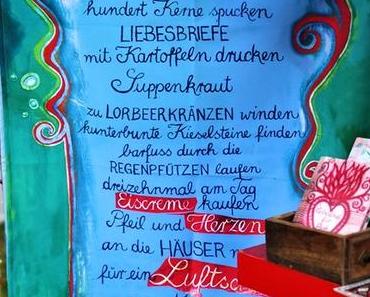 hundert Kerne spucken
LIEBESBRIEFE
mit Kartoffeln drucken
Suppenkraut
zu LORBEERKRÄNZEN winden
kunterbunte Kieselsteine finden
barfuss durch die
REGENPFÜTZEN laufen
dreizehnmal am Tag
Eiscreme kaufen
Pfeil und Herzen
an die HÄUSER
für ein Lufts